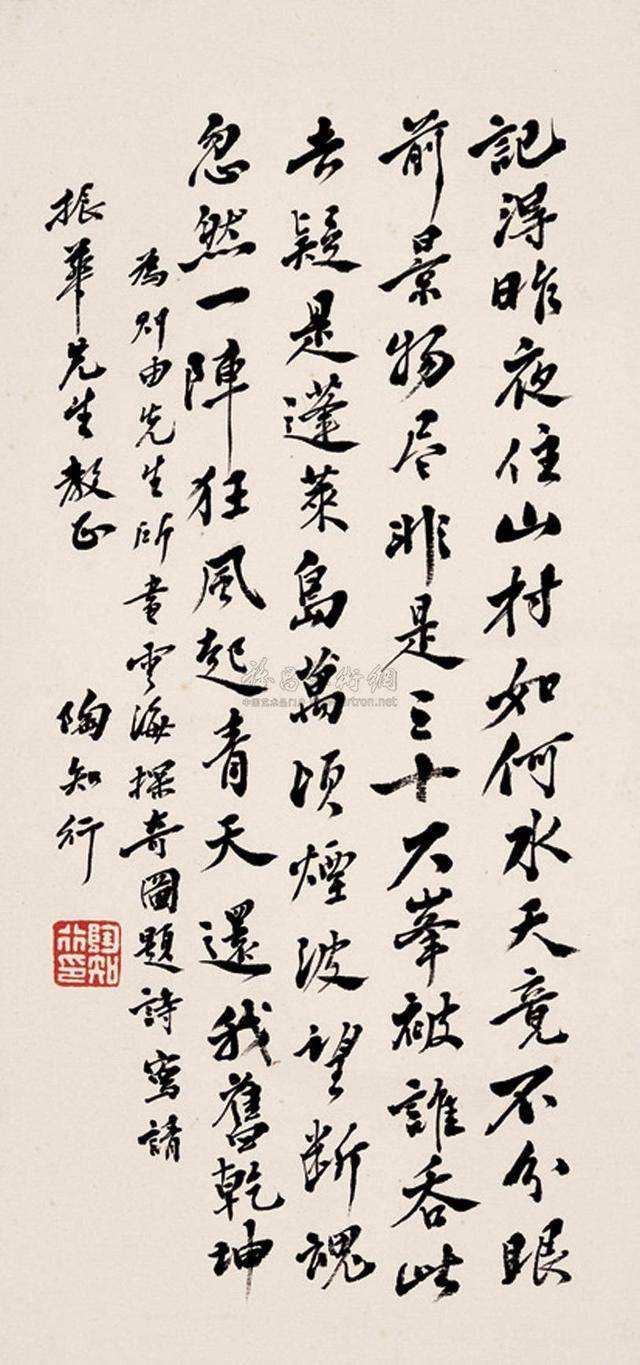 記得昨夜住山村如何水天竟不分眼
前景物尽非是三十六峯被誰吞此
去疑是蓬萊島萬頃煙波望斷魂
忽然一陣狂風起青天還我舊乾坤
為則由先生所書雲海探奇圖題詩寫請
振華先生教正
陶知行
陶知行印